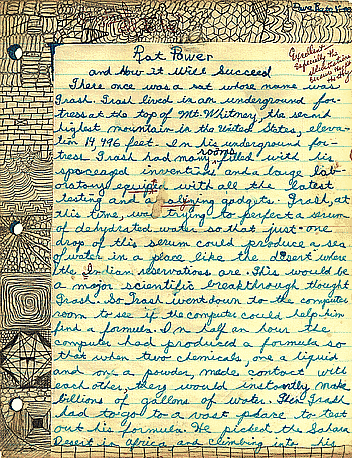 Excellent
Especially the
illustrations
Rat Power
and How it Will Succeed
There once was a rat whose name was
Trash. Trash lived in an underground for-
tress at the top of Mt. Whitney, the second
highest mountain in the United States, eleva-
tion 14,496 feet. In his underground for-
tress Trash had many rooms filled with his
spaceaged inventions and a large lab-
oratory equipt with all the latest
testing and analizing gadgets. Trash, at
this time, was trying to perfect a serum
of dehydrated water so that just one
drop of this serum could produce a sea
of water in a place like the desert where
the Indian reservations are. This would be
a major scientific breakthrough thought
Trash. So Trash went down to the computer
room to see if the computer could help him
find a formula. In half an hour the
computer had produced a formula so
that when two chemicals, one a liquid
and one a powder, made contact with
each other, they would instantly make
billions of gallons of water. Then Trash
had to go to a vast place to test
out his formula. He picked the Sahara
Desert in Africa and climbing into his